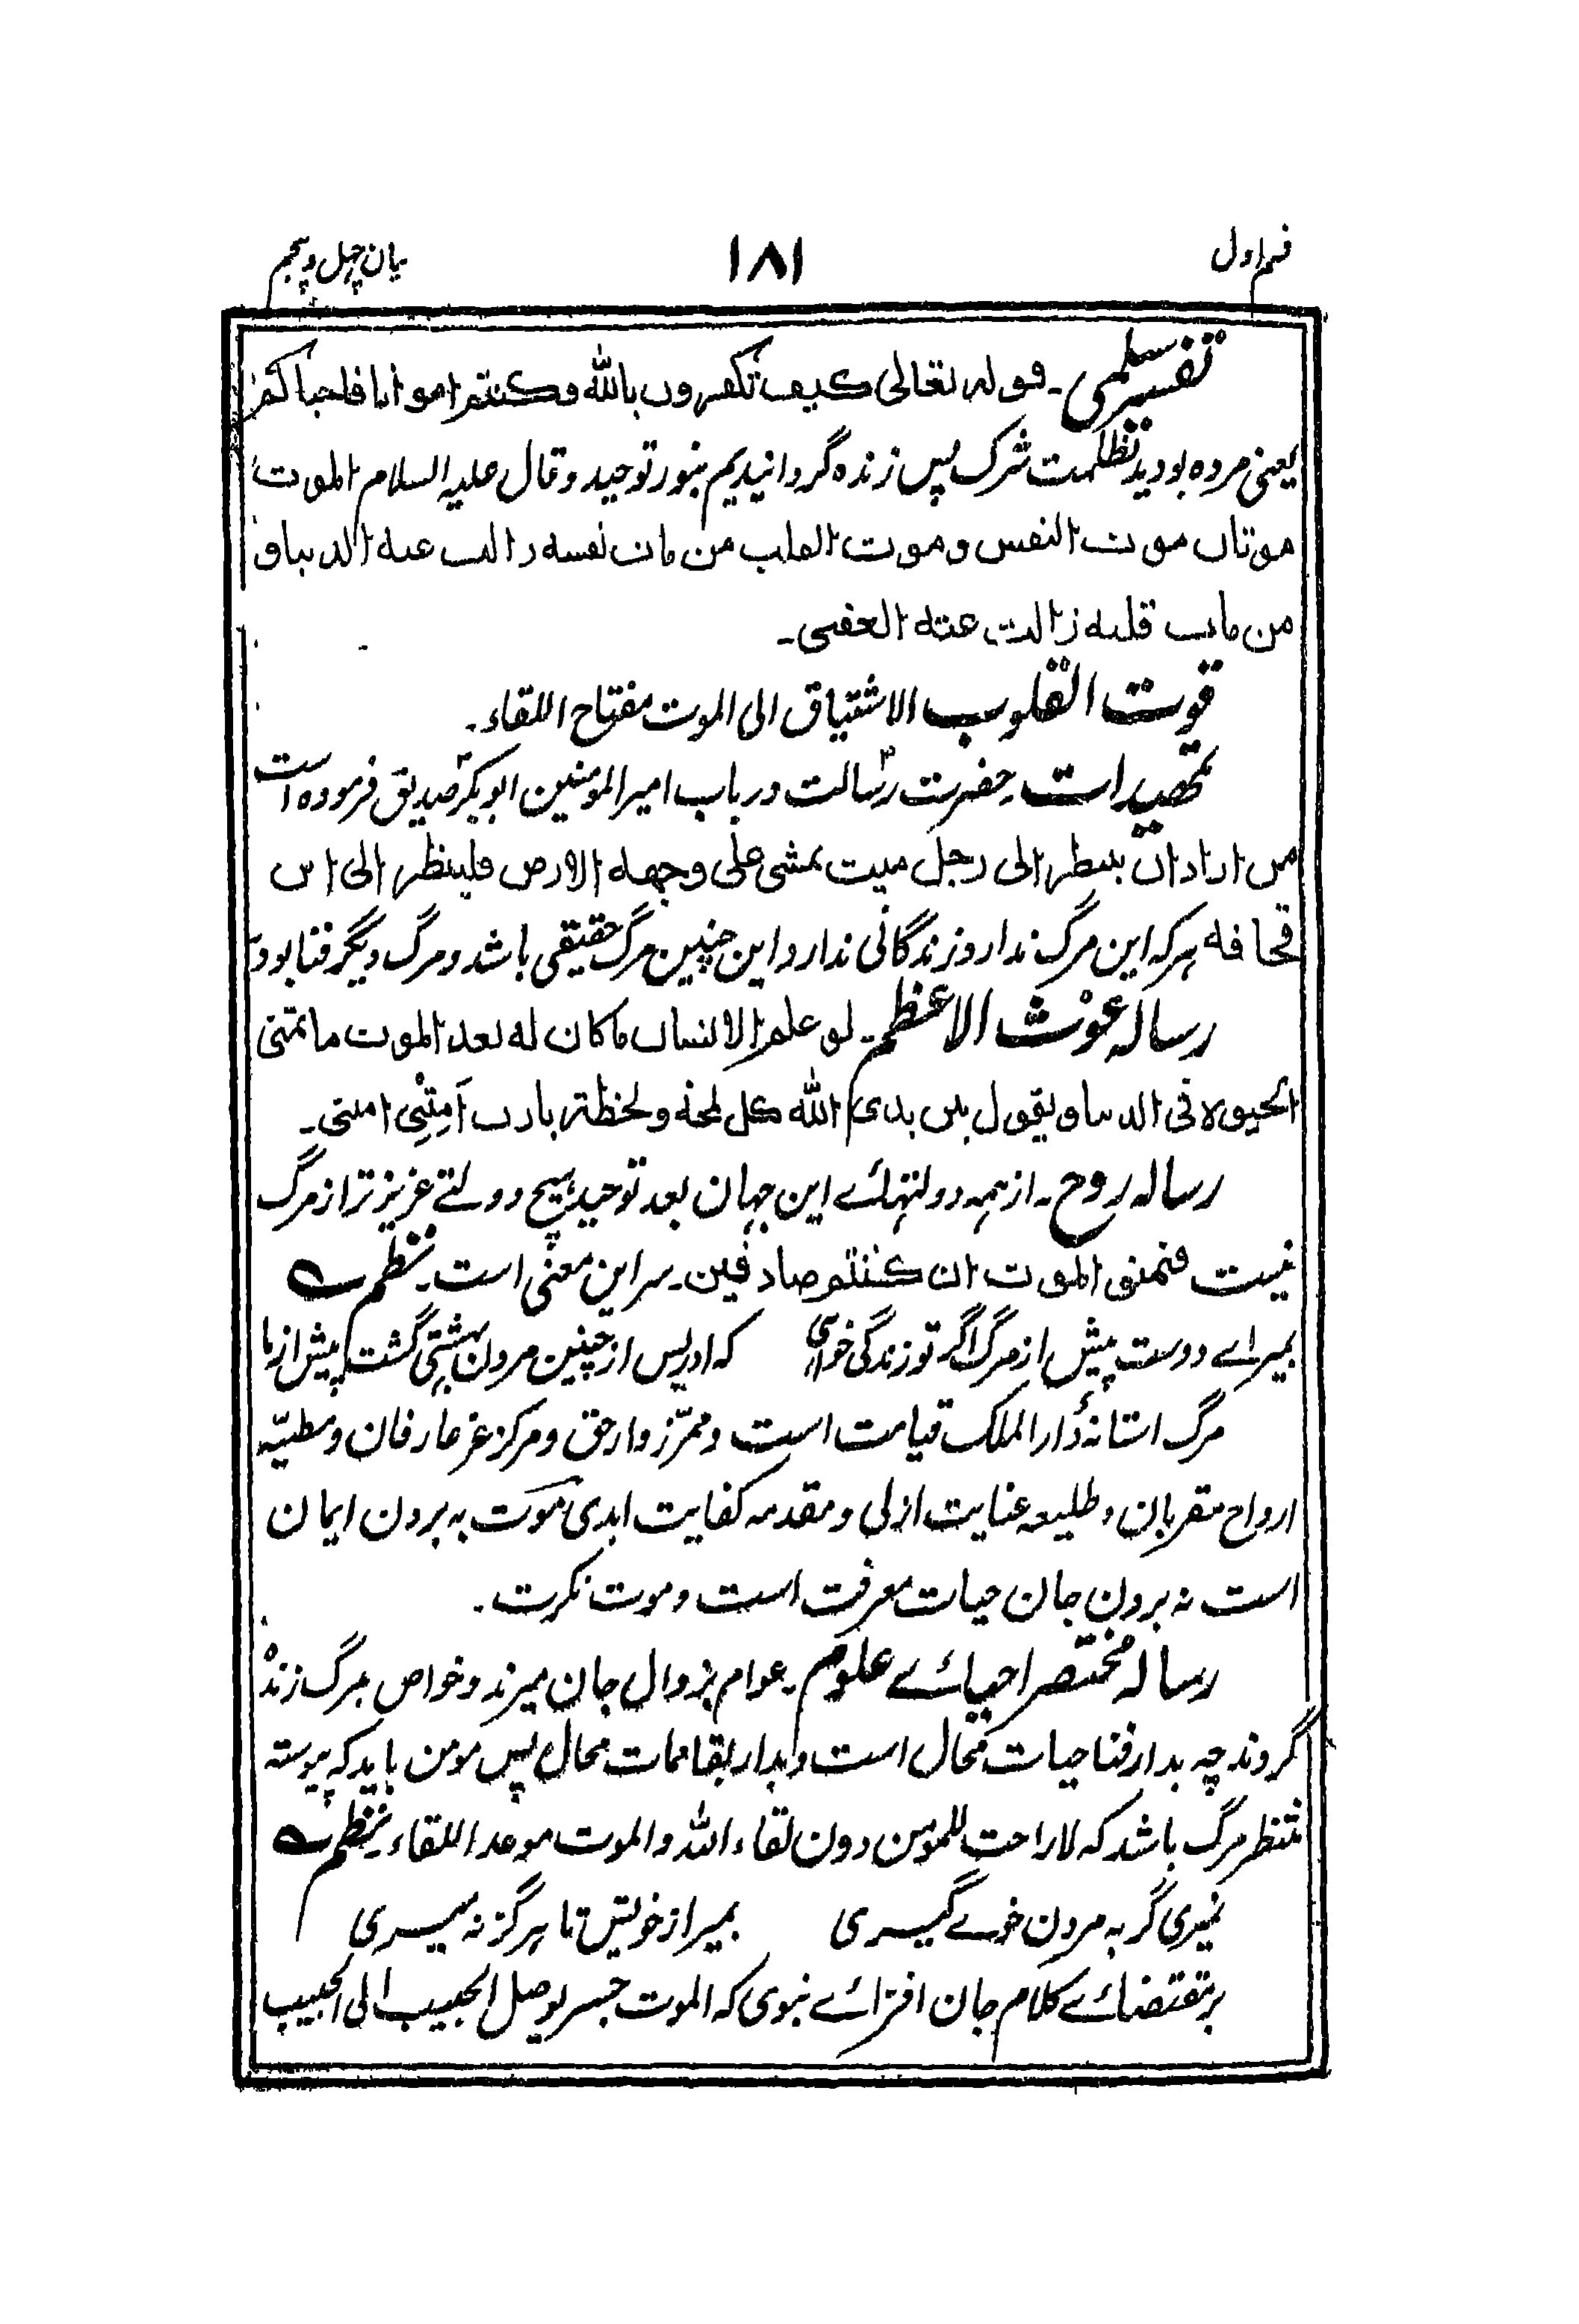 قسم اول ۱۸۱ بیان چهل و پنجم
تفسیر سلمی۔ قوله تعالی کیف تکفرون بالله وکنتم امواتا فاحیاکم
یعنی مرده بودید بظلمت شرک پس زنده گردانیدیم بنور توحید وقال علیه السلام الموت
موتان موت النفس وموت القلب من مات نفسه زالت عنه الدنیا و
من مات قلبه زالت عنه العقبی۔
قوت القلوب الاشتیاق الی الموت مفتاح اللقاء۔
تمهیدات۔ حضرت رسالتؐ در باب امیر المومنین ابوبکر صدیق فرموده است
من اراد ان ینظر الی رجل میت یمشی علی وجهه الارض فلینظر الی ابن
قحافه هرکه این مرگ ندارد زندگانی ندارد این چنین مرگ حقیقی باشد ومرگ دیگر فنا بود
رساله غوث الاعظم۔ لو علم الانسان ما کان له بعد الموت ما تمنی
الحیوة فی الدنیا ویقول بین یدی الله کل لمحة ولحظة یارب اَمِتْنِی امتنی۔
رساله روح۔ از همه دولتهائے این جهان بعد توحید هیچ دولتے عزیز تر از مرگ
نیست فتمنو الموت ان کنتم صادقین۔ سر این معنی است۔ نظم ؎
بمیر اے دوست پیش از مرگ اگر تو زندگی خواهی که ادریس از چنین مردن بهشتی گشت پیش از ما
مرگ استانهٔ دار الملک قیامت است وممرّ زوار حق ومرکز عز عارفان ومطیّه
ارواح مقربان و طلیعه عنایت ازلی و مقدمه کفایت ابدی موت به بردن ایمان
است نه بردن جان حیات معرفت است و موت نکرت۔
رساله مختصر احیائے علوم۔ عوام بزوال جان میرند وخواص بمرگ زنده
گردند چه بدار فنا حیات محال است وبدار بقا ممات محال پس مومن باید که پیوسته
منتظر مرگ باشد که لاراحت للمومن دون لقاء الله والموت موعد اللقاء۔ نظم ؎
نمیری گر به مردن خوے گیری بمیر از خویش تا هرگز نه میری
بر مقتضائے کلام جان افزائے نبوی که الموت جسر یوصل الحبیب الی الحبیب